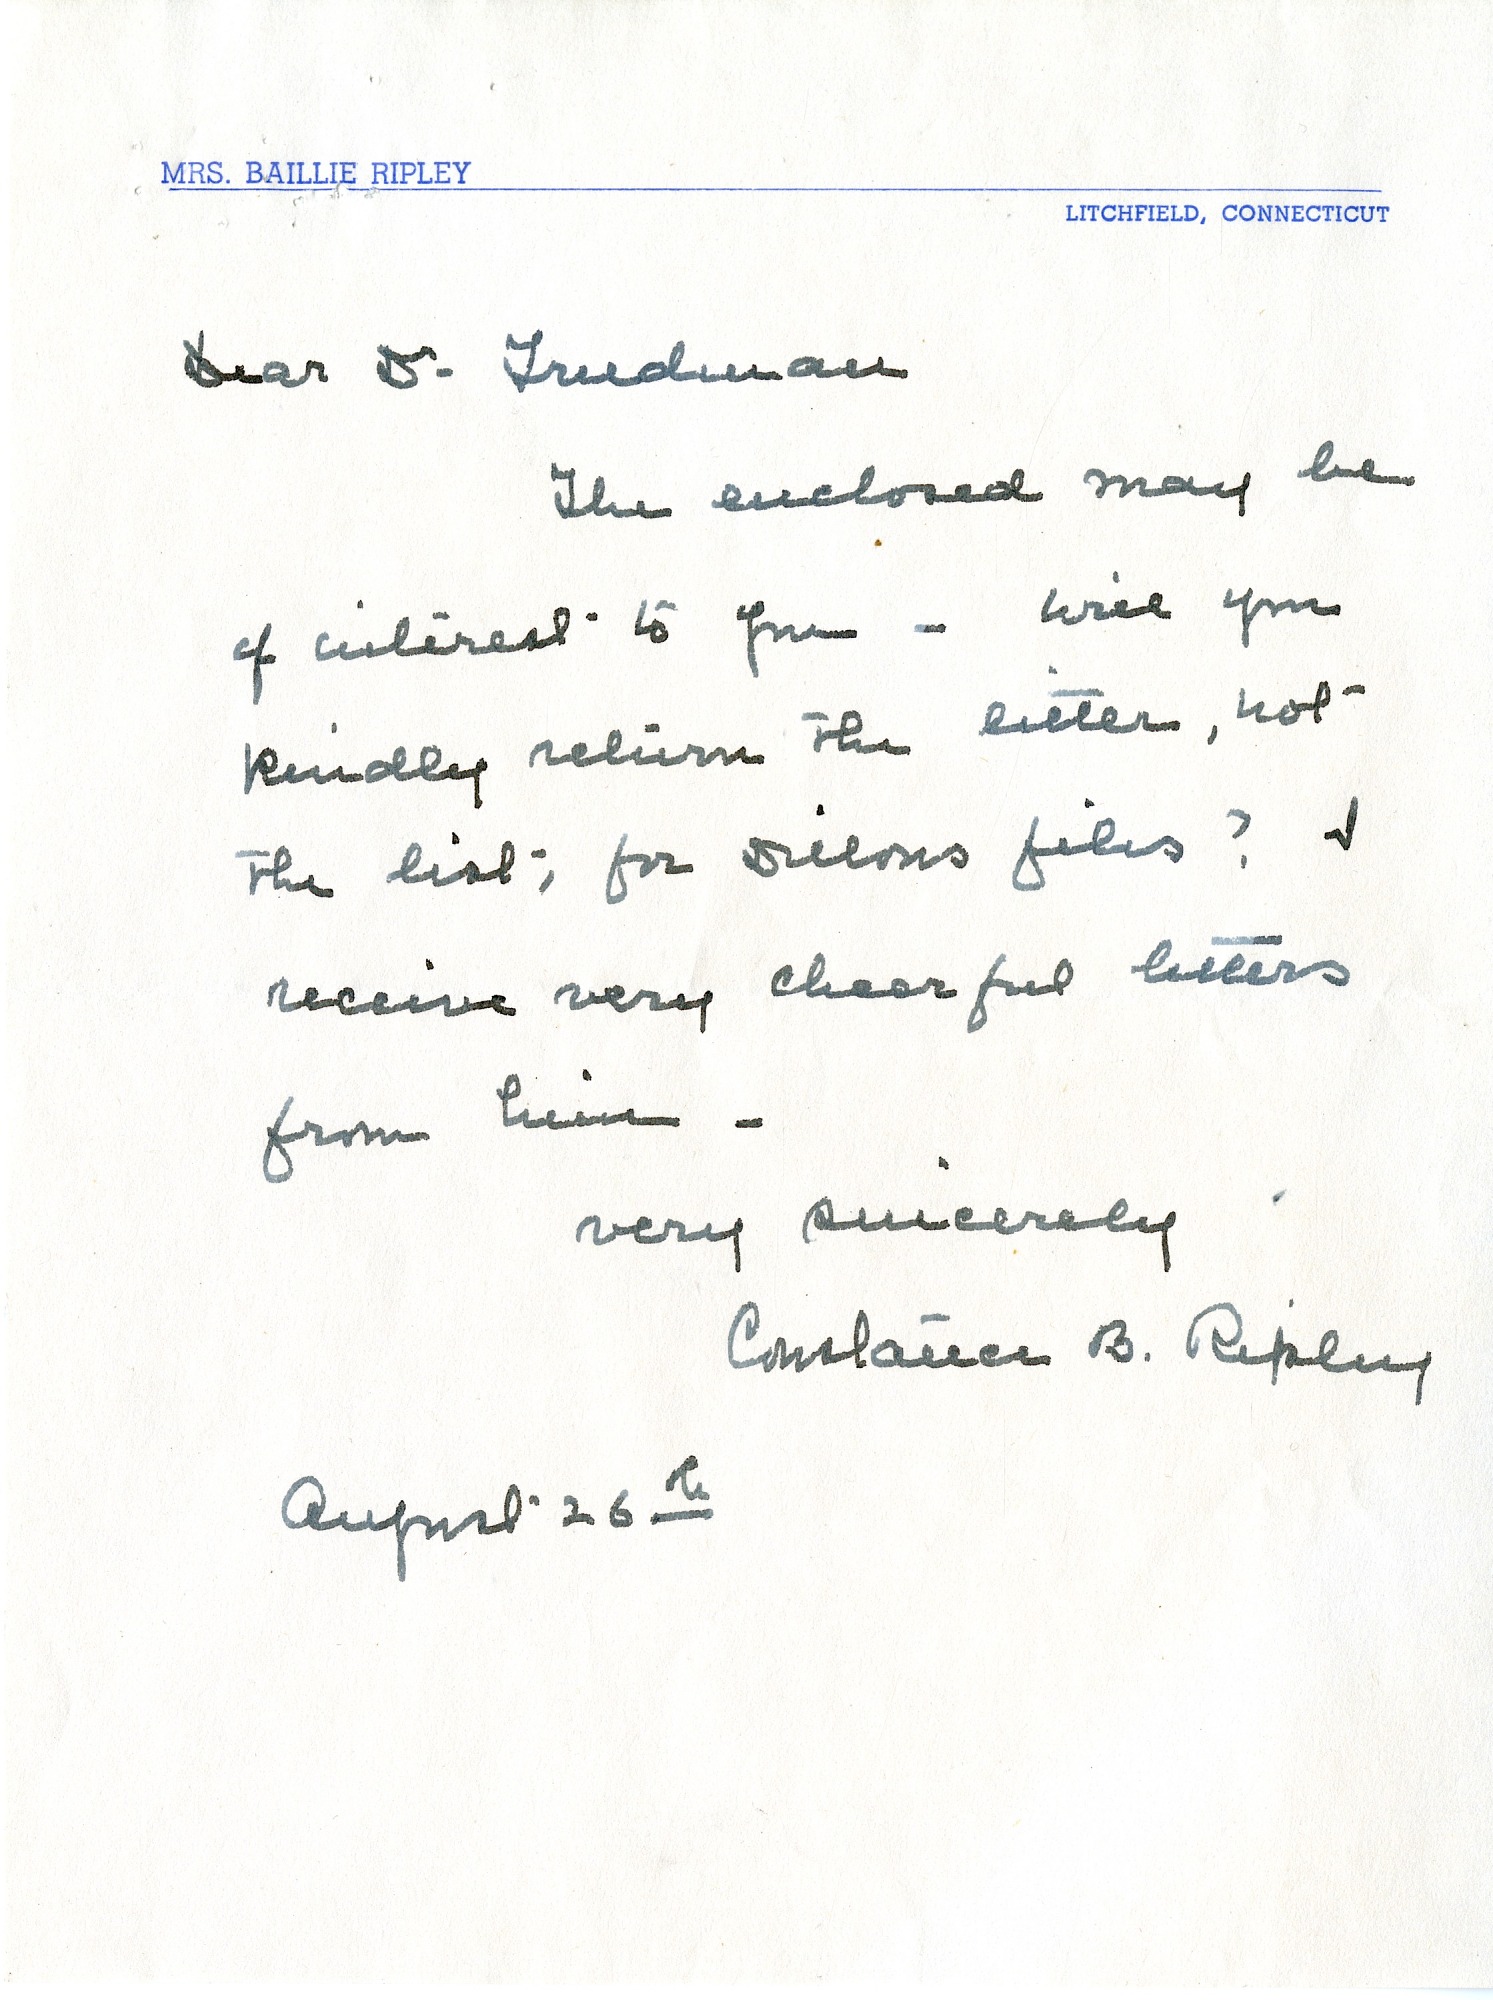 MRS. BAILLIE RIPLEY
LITCHFIELD, CONNECTICUT
Dear Dr. Friedman
The enclosed may be
of interest to you - will you
kindly return the letter, not
the list, for Dillons files? I
receive very cheerful letters
from him -
very sincerely
Constance B. Ripley
August 26th